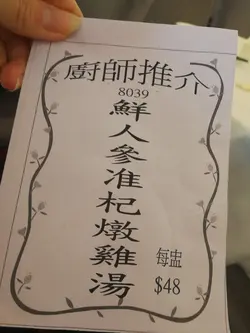 廚師推介
8039
鮮人參淮杞燉雞湯
每盅
$48